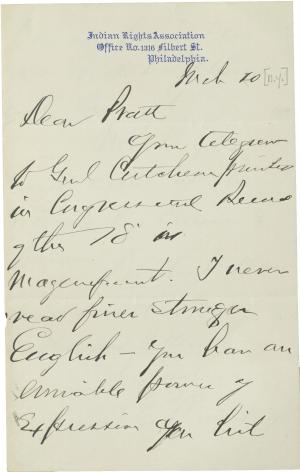 Indian Rights Association
Office No. 1316 Filbert St.
Philadelphia.
Mch 10
Dear Pratt
Your telegram
to Genl Cutcheon printed
in Congressional Record
of the 78 is
Magnificent. I never
read finer stronger
English – You have an
enviable power of
Expression You hit